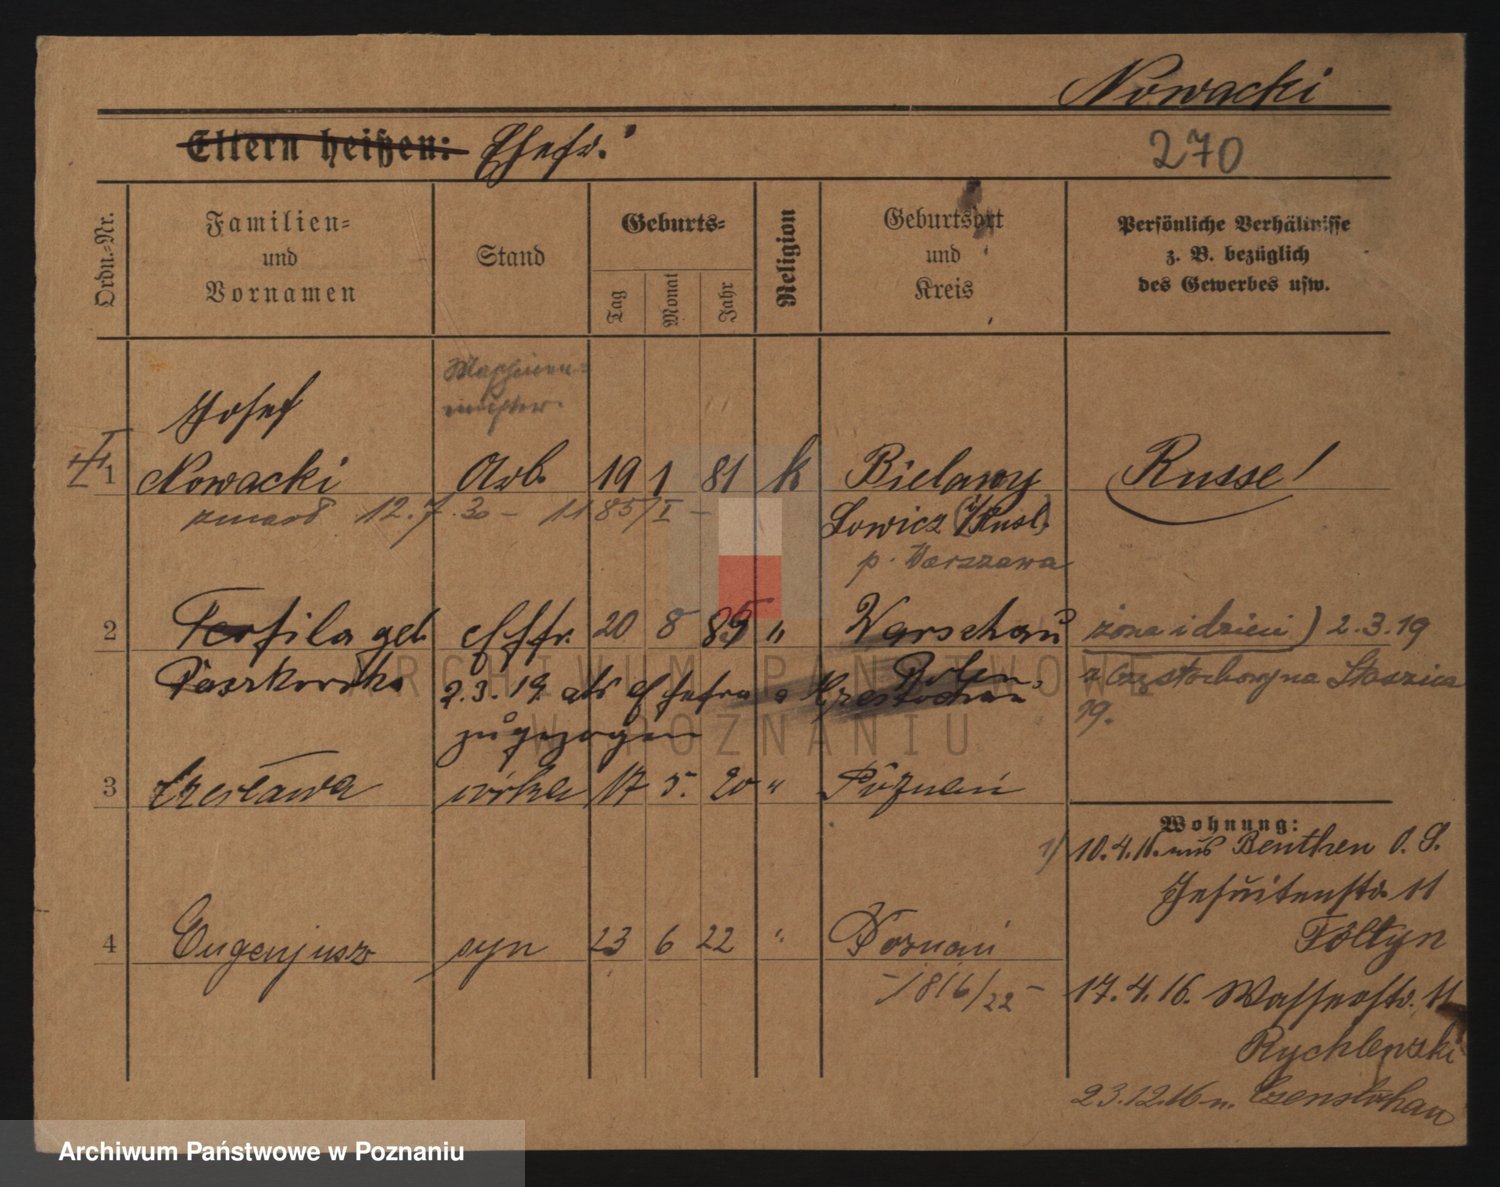 Nowacki
Eltern heißen: Ehefr.
270
Ordn.-Nr.
Familien-
und
Vornamen
Stand
Geburts-
Tag
Monat
Jahr
Religion
Geburtsort
und
Kreis
Persönliche Verhältnisse
z. B. bezüglich
des Gewerbes usw.
Maschinen-
meister.
Josef
1 Nowacki Arb. 19 1 81 k Bielawy Russe!
zmarł 12.7.30 - 1185/I - Lowicz (Rusl.)
p. Warszawa
2 Teofila geb. Ehefr. 20 8 85 " Warschau żona i dzieci) 2.3.19
Paszkowska Polen z Częstochowy na Staszica
2.3.19 als Ehefrau a Czestochau 19.
zugezogen
3 Czesława córka 17 5. 20 " Poznań
Wohnung:
1) 10.4.11. aus Beuthen O.S.
Jesuitenstr. 11
Foltyn
4 Eugenjusz syn 23 6 22 " Poznań
-1816/22-
17.4.16. Wasserstr. 11
Rychlewski
23.12.16 n. Czenstochau
ARCHIWUM PAŃSTWOWE
W POZNANIU
Archiwum Państwowe w Poznaniu